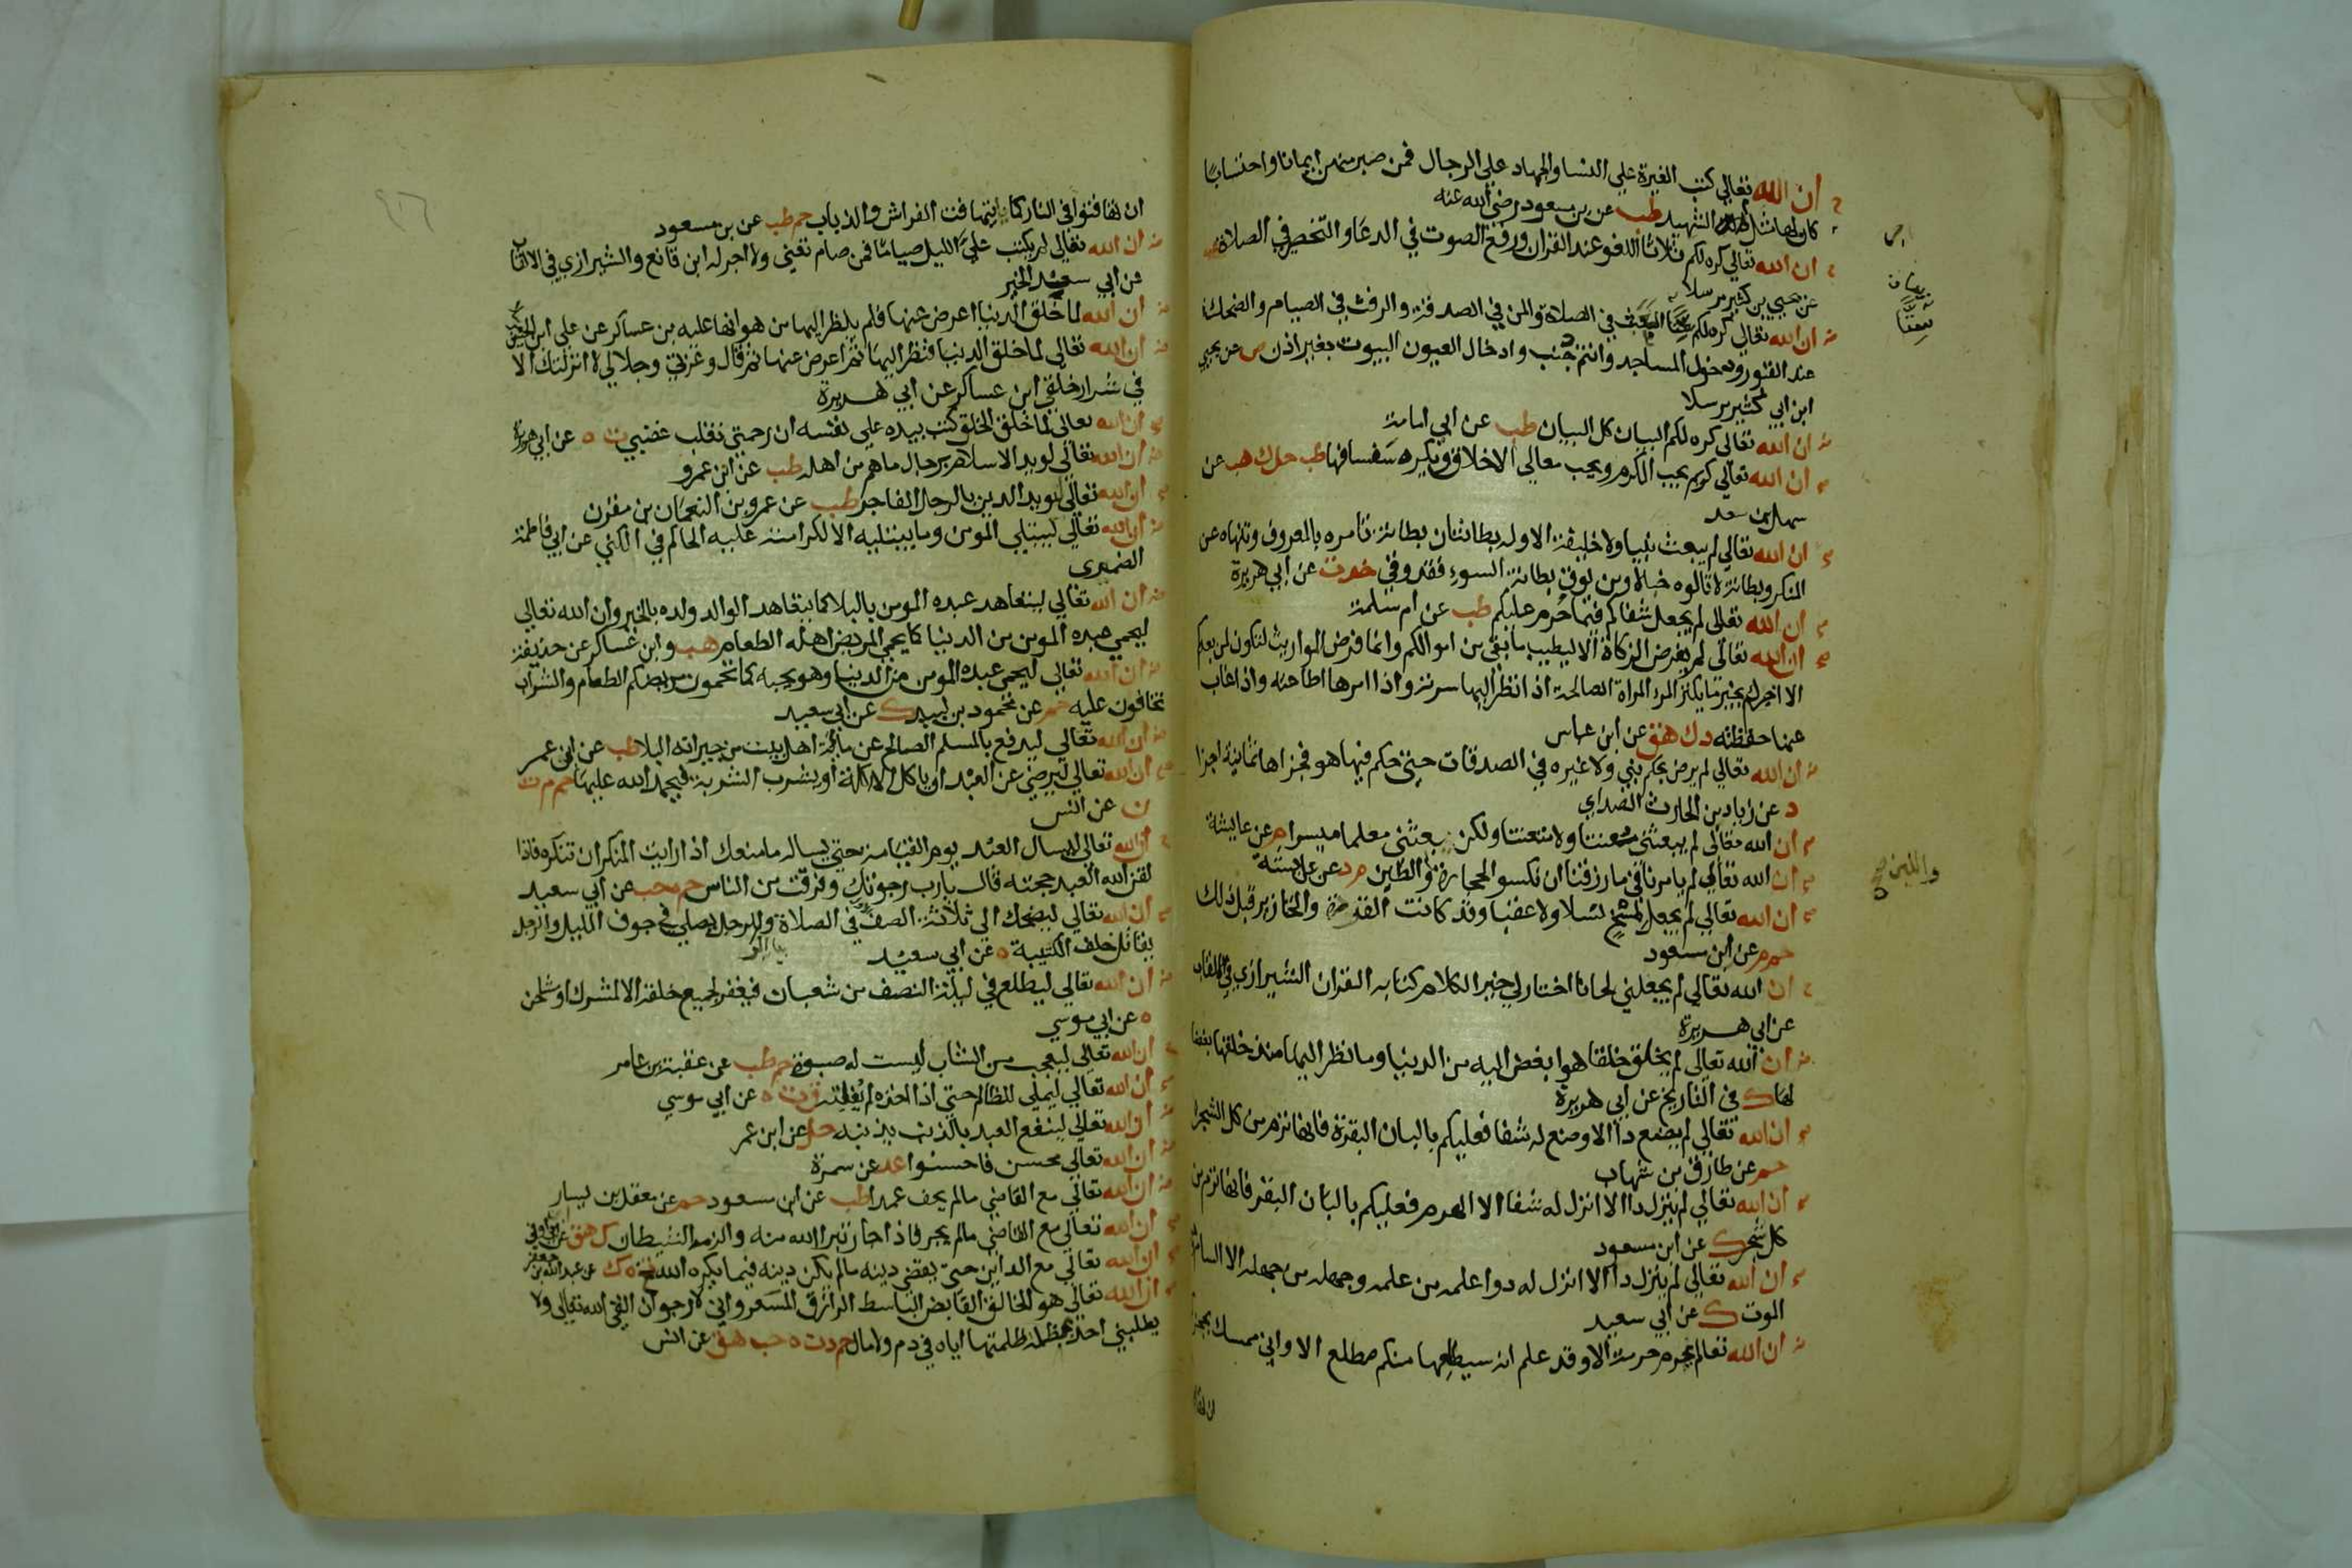 ان الله تعالي كتب الغيرة علي النسا والجهاد علي الرجال فمن صبر منهن ايمانا واحتسابا
كان لها مثل اجر الشهيد طب عن بن مسعود رضي الله عنه
ان الله تعالي كره لكم ثلاثا اللغو عند القران ورفع الصوت في الدعا والتخصر في الصلاة
عن يحيي بن كثير مرسلا
ان الله تعالي كره لكم ستا العبث في الصلاة والمن في الصدقة والرفث في الصيام والضحك
عند القبور ودخول المساجد وانتم جنب وادخال العيون البيوت بغير اذن ص عن يحيي
ابن ابي كثير مرسلا
ان الله تعالي كره لكم البيان كل البيان طب عن ابي امامة
ان الله تعالي كريم يحب الكرم ويحب معالي الاخلاق ويكره سفسافها طب حل ك هب عن
سهل بن سعد
ان الله تعالي لم يبعث نبيا ولا خليفة الا وله بطانتان بطانة تامره بالمعروف وتنهاه عن
المنكر وبطانة لا تالوه خبالا ومن يوق بطانة السوء فقد وقي خد ت عن ابي هريرة
ان الله تعالي لم يجعل شفاكم فيما حرم عليكم طب عن ام سلمة
ان الله تعالي لم يفرض الزكاة الا ليطيب ما بقي من اموالكم وانما فرض المواريث لتكون لمن بعدكم
الا اخبرك بخير ما يكنز المرء المراة الصالحة اذا نظر اليها سرته واذا امرها اطاعته واذا غاب
عنها حفظته د ك هق عن ابن عباس
ان الله تعالي لم يرض بحكم نبي ولا غيره في الصدقات حتي حكم فيها هو فجزاها ثمانية اجزا
د عن زياد بن الحارث الصداي
ان الله تعالي لم يبعثني معنتا ولا متعنتا ولكن بعثني معلما ميسرا م عن عايشة
ان الله تعالي لم يامرنا فيما رزقنا ان نكسو الحجارة والطين م د عن عايشة
ان الله تعالي لم يجعل لمسخ نسلا ولا عقبا وقد كانت القردة والخنازير قبل ذلك
حم م عن ابن مسعود
ان الله تعالي لم يجعلني لحانا اختار لي خير الكلام كتابه القران الشيرازي في الالقاب
عن ابي هريرة
ان الله تعالي لم يخلق خلقا هو ابغض اليه من الدنيا وما نظر اليها منذ خلقها بغضا
لها ك في التاريخ عن ابي هريرة
ان الله تعالي لم يضع دا الا وضع له شفا فعليكم بالبان البقرة فانها ترم من كل الشجر
حم عن طارق بن شهاب
ان الله تعالي لم ينزل دا الا انزل له شفا الا الهرم فعليكم بالبان البقر فانها ترم من
كل شجر ك عن ابن مسعود
ان الله تعالي لم ينزل دا الا انزل له دوا علمه من علمه وجهله من جهله الا السام
الموت ك عن ابي سعيد
ان الله تعالي لم يحرم حرمة الا وقد علم انه سيطلعها منكم مطلع الا واني ممسك بحجز
واللبن
ان تهافتوا في النار كما يتهافت الفراش والذباب حم طب عن بن مسعود
ان الله تعالي لم يكتب علي الليل صياما فمن صام تعني ولا اجر له ابن قانع والشيرازي في الالقاب
عن ابي سعيد الخير
ان الله لما خلق الدنيا اعرض عنها فلم ينظر اليها من هوانها عليه بن عساكر عن علي ابن الحسين
ان الله تعالي لما خلق الدنيا فنظر اليها ثم اعرض عنها ثم قال وعزتي وجلالي لا انزلتك الا
في شرار خلقي ابن عساكر عن ابي هريرة
ان الله تعالي لما خلق الخلق كتب بيده علي نفسه ان رحمتي تغلب غضبي ت ه عن ابي هريرة
ان الله تعالي ليويد الاسلام برجال ما هم من اهله طب عن ابن عمرو
ان الله تعالي ليويد الدين بالرجل الفاجر طب عن عمرو بن النعمان بن مقرن
ان الله تعالي ليبتلي المومن وما يبتليه الا لكرامته عليه الحاكم في الكني عن ابي فاطمة
الضمري
ان الله تعالي ليتعاهد عبده المومن بالبلا كما يتعاهد الوالد ولده بالخير وان الله تعالي
ليحمي عبده المومن من الدنيا كما يحمي المريض اهله الطعام هب وابن عساكر عن حذيفة
ان الله تعالي ليحمي عبده المومن من الدنيا وهو يحبه كما تحمون مريضكم الطعام والشراب
تخافون عليه حم عن محمود بن لبيد ك عن ابي سعيد
ان الله تعالي ليدفع بالمسلم الصالح عن ماية اهل بيت من جيرانه البلا طب عن ابن عمر
ان الله تعالي ليرضي عن العبد ان ياكل الاكلة او يشرب الشربة فيحمد الله عليها حم م ت
ن عن انس
ان الله تعالي ليسال العبد يوم القيامة حتي يساله ما منعك اذا رايت المنكر ان تنكره فاذا
لقن الله العبد حجته قال يارب رجوتك وفرقت من الناس حم ه حب عن ابي سعيد
ان الله تعالي ليضحك الي ثلاثة الصف في الصلاة والرجل يصلي في جوف الليل والرجل
يقاتل خلف الكتيبة ه عن ابي سعيد
ان الله تعالي ليطلع في ليلة النصف من شعبان فيغفر لجميع خلقه الا لمشرك او مشاحن
ه عن ابي موسي
ان الله تعالي ليعجب من الشاب ليست له صبوة حم طب عن عقبة بن عامر
ان الله تعالي ليملي للظالم حتي اذا اخذه لم يفلته ق ت ه عن ابي موسي
ان الله تعالي لينفع العبد بالذنب يذنبه حل عن ابن عمر
ان الله تعالي محسن فاحسنوا عد عن سمرة
ان الله تعالي مع القاضي مالم يحف عمدا طب عن ابن مسعود حم عن معقل بن يسار
ان الله تعالي مع القاضي مالم يجر فاذا جار تبرا الله منه والزمه الشيطان ك هق عن ابن ابي اوفي
ان الله تعالي مع الداين حتي يقضي دينه مالم يكن دينه فيما يكره الله تخ ه ك عن عبد الله بن جعفر
ان الله تعالي هو الخالق القابض الباسط الرازق المسعر واني لارجو ان القي الله تعالي ولا
يطلبني احد بمظلمة ظلمتها اياه في دم ولا مال حم د ت ه حب هق عن انس